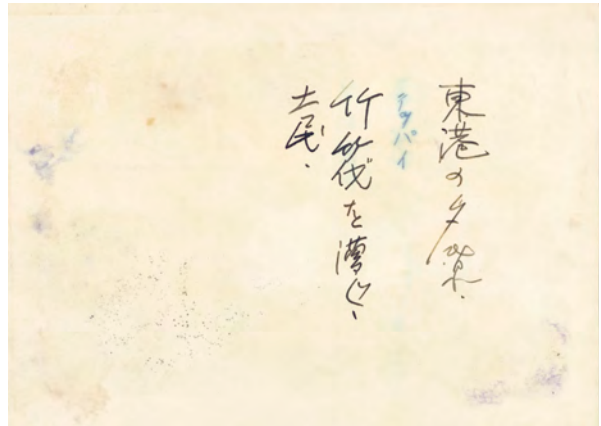 東港の夕景.
テッパイ
竹筏を漕ぐ、
土民.